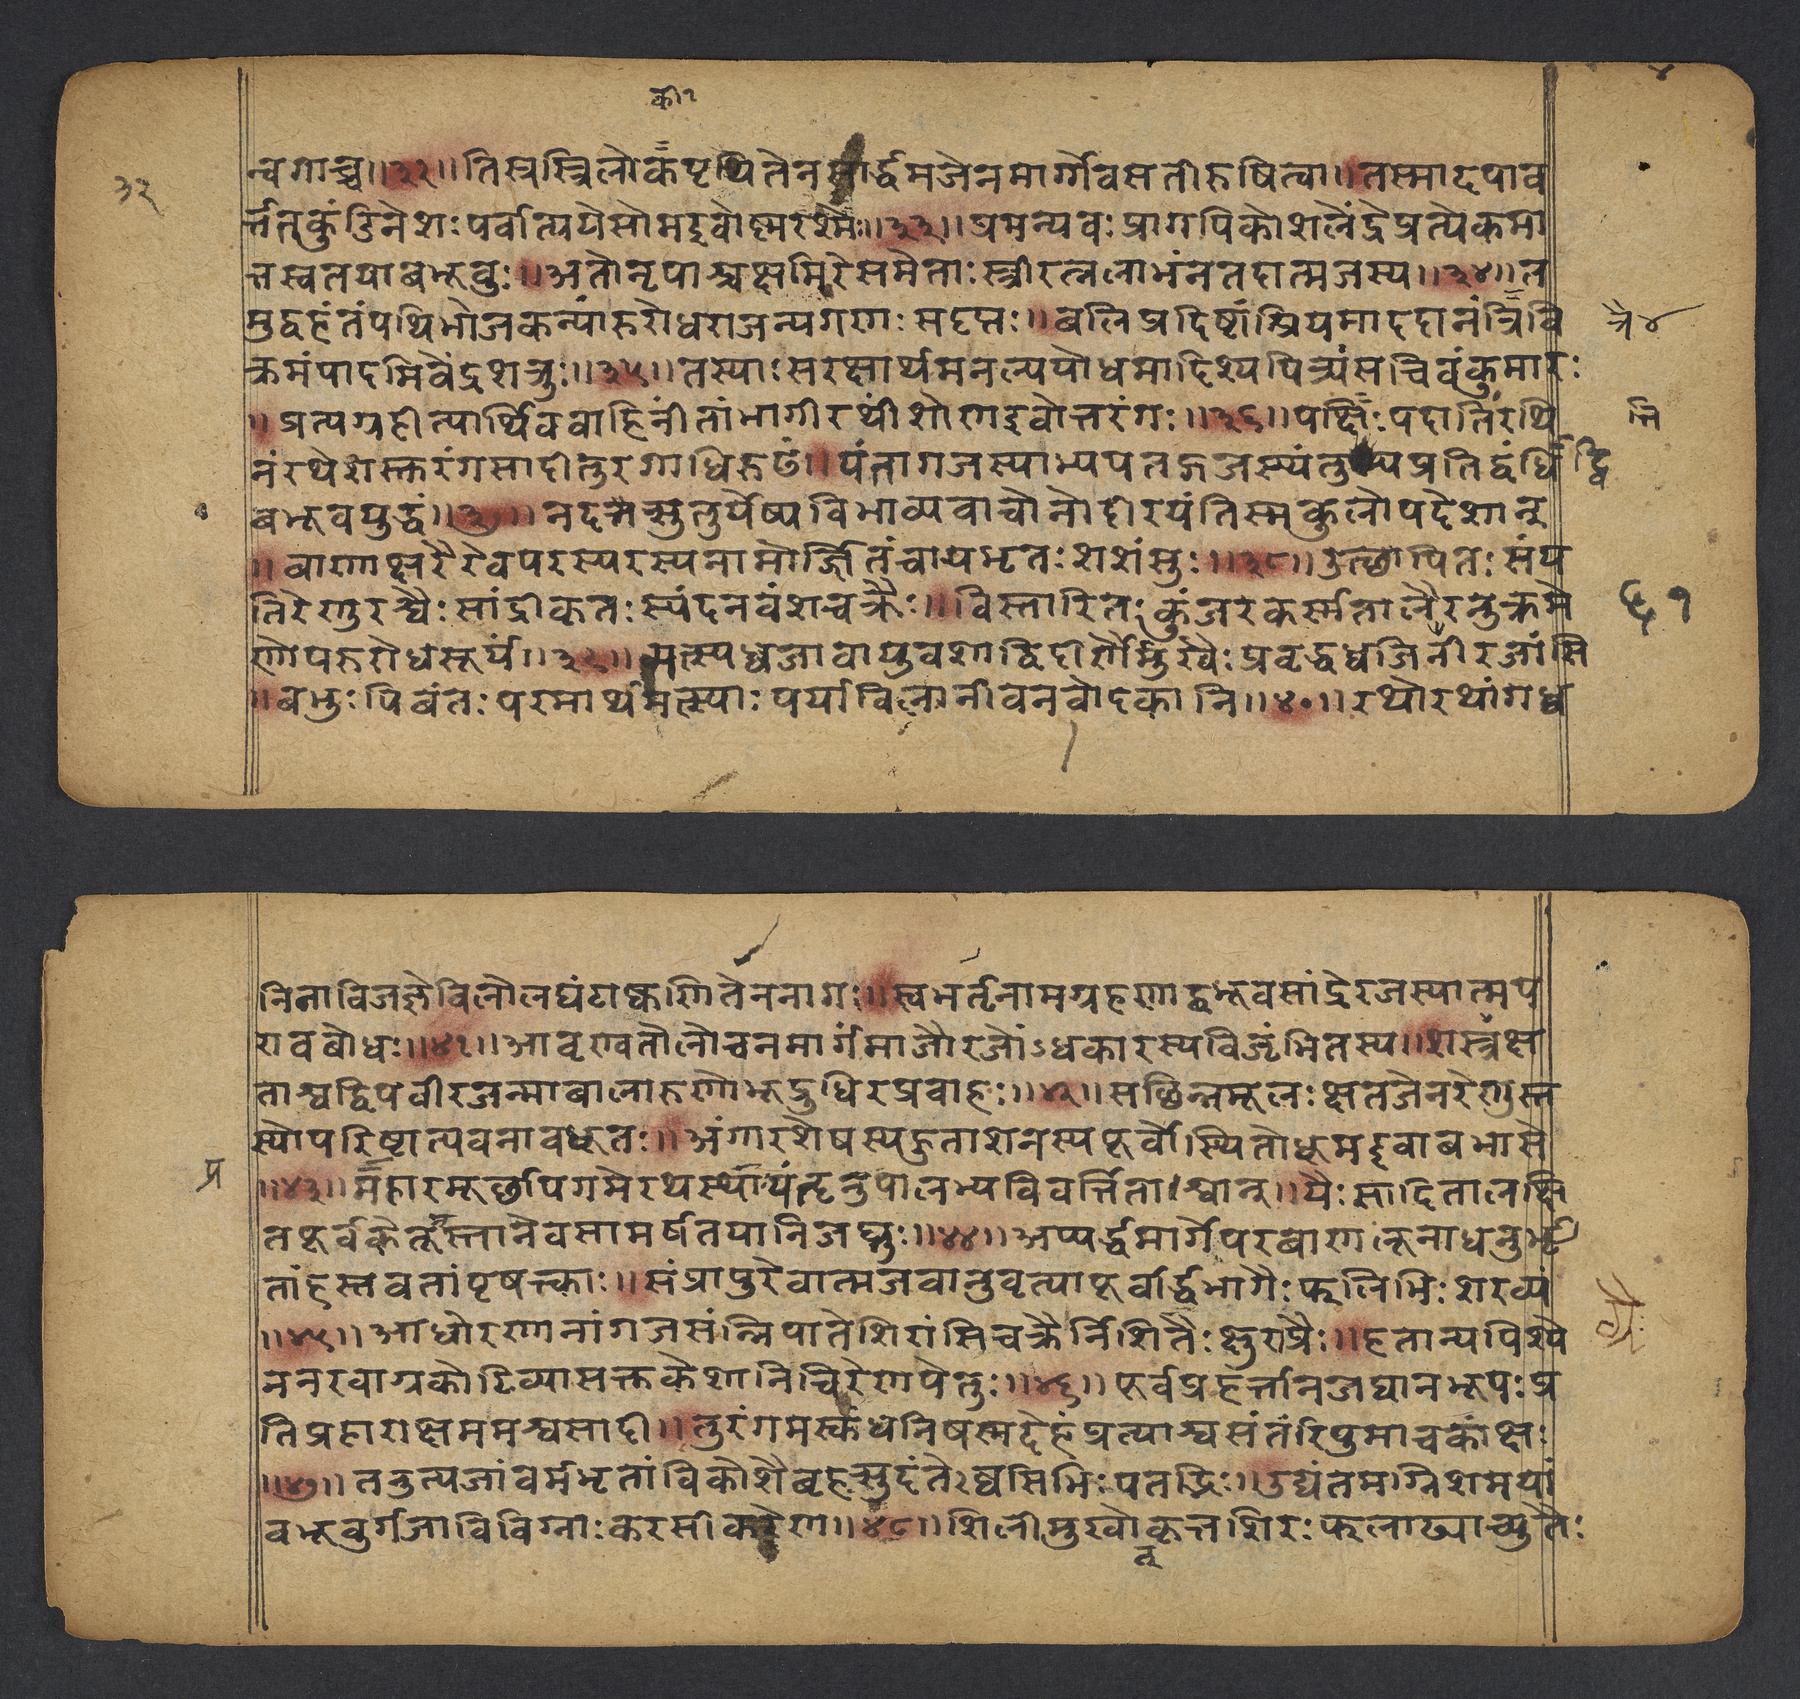 को१
न्वगाच्च॥३२॥तिस्रस्त्रिलोकपृथितेनसार्द्धमजेनमार्गेवसतीरुषित्वा॥तस्मादपाव
३२
र्त्ततकुंडिनेशःपर्वात्ययेसोमइवोष्मरश्मेः॥३३॥प्रमन्यवःप्रागपिकोशलेंद्रेप्रत्येकमा
त्तस्वतयाबभूवुः॥अतोनृपाश्चक्षमिरेसमेताःस्त्रीरत्नलाभंनतदात्मजस्य॥३४॥त
मुद्वहंतंपथिभोजकन्यांरुरोधराजन्यगणःसदृप्तः॥बलिप्रदिष्टांश्रियमाददानंत्रिवि
त्रै४
क्रमंपादमिवेंद्रशत्रुः॥३५॥तस्याःसरक्षार्थमनल्पयोधमादिश्यपित्र्यंसचिवंकुमारः
॥प्रत्यग्रहीत्पार्थिववाहिनींतांभागीरथींशोणइवोत्तरंगः॥३६॥पत्तिःपदातिंरथि
नंरथेशस्तरंगसादीतुरगाधिरूढं॥यंतागजस्याभ्यपतद्गजस्थंतुल्यप्रतिद्वंधि
द्वि
बभूवयुद्धं॥३७॥नदत्सुतूर्येष्वविभाव्यवाचोनोदीरयंतिस्मकुलोपदेशान्
॥बाणाक्षरैरेवपरस्परस्यनामोर्जितंचापभृतःशशंसुः॥३८॥उत्थापितःसंय
तिरेणुरश्वैःसांद्रीकृतःस्यंदनवंशचक्रैः॥विस्तारितःकुंजरकर्णतालैरनुक्रमे
६१
णोपरुरोधसूर्यं॥३९॥मत्स्यध्वजावायुवशाद्विदीर्णैर्मुखैःप्रवृद्धध्वजिनीरजांसि
॥बभुःपिबंतःपरमार्थमत्स्याःपर्याविलानीवनवोदकानि॥४०॥रथोरथांगध्व
निनाविजज्ञेविलोलघंटाक्वणितेननागः॥स्वभर्तृनामग्रहणाद्बभूवसांद्रेरजस्यात्मप
रावबोधः॥४१॥आवृण्वतोलोचनमार्गमाजौरजोंऽधकारस्यविजृंभितस्य॥शस्त्रक्ष
ताश्वद्विपवीरजन्माबालारुणोभूद्रुधिरप्रवाहः॥४२॥सछिन्नमूलःक्षतजेनरेणुस्त
स्योपरिष्टात्पवनावधूतः॥अंगारशेषस्यहुताशनस्यपूर्वोत्थितोधूमइवाबभासे
प्र
॥४३॥महारमूर्छापगमेरथस्थायंतॄनुपालभ्यविवर्त्तिताश्वान्॥यैःसादितालक्षि
तपूर्वकेतूंस्तानेवसामर्षतयानिजघ्नुः॥४४॥अप्यर्द्धमार्गेपरबाणलूनाधनुर्भृ
तांहस्तवतांपृषत्काः॥संप्रापुरेवात्मजवानुवृत्यापूर्वार्द्धभागैःफलिभिःशरव्यं
॥४५॥आधोरणानांगजसंन्निपातेशिरांसिचक्रैर्निशितैःक्षुराग्रैः॥हतान्यपिश्ये
ननखाग्रकोटिव्यासक्तकेशानिचिरेणपेतुः॥४६॥पूर्वप्रहर्त्तानजघानभूयःप्र
तिप्रहाराक्षममश्वसादी॥तुरंगमस्कंधनिषण्णदेहंप्रत्याश्वसंतंरिपुमाचकांक्षः
॥४७॥तनुत्यजांवर्मभृतांविकोशैबृहत्सुदंतेष्वसिभिःपतद्भिः॥उद्यंतमग्निशमयां
बभूवुर्गजाविविग्नाःकरसीकरेण॥४८॥शिलीमुखोकृत्तशिरःफलाढ्याच्युतैः
त्